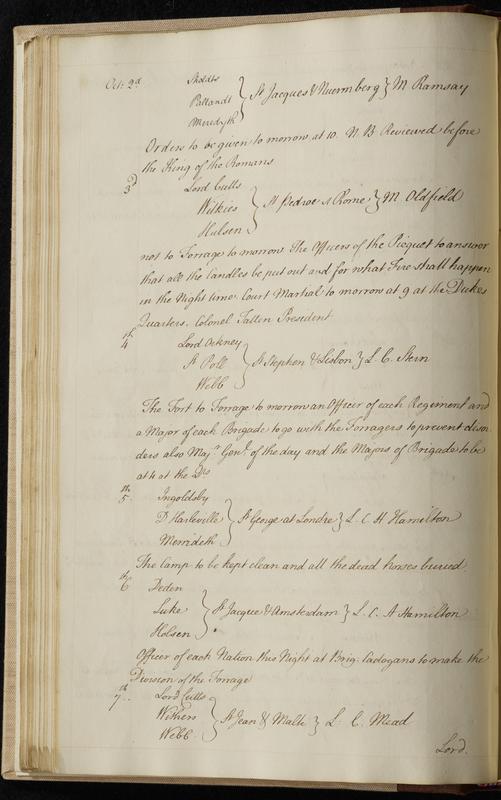 Oct: 2d Sholdts
Pallandt } St Jacques & Nuermberg } M Ramsay
Meredyth
Orders to be given to morrow at 10. N. B. Reviewed before
the King of the Romans
3D Lord Cutts
Wilkies } St Pedroe & Rome } M Oldfield
Hulsen
not to Forrage to morrow The Officers of the Picquet to answer
that all the Candles be put out and for what Fire shall happen
in the Night time Court Martial to morrow at 9 at the Dukes
Quarters, Colonel Tatten President
4th Lord Orkney
St Poll } St Stephen & Lisbon } L. C. Stern
Webb
The Fort to Forrage to morrow an Officer of each Regement and
a Major of each Brigade to go with the Forragers to prevent disor
ders also Majr Genl of the day and the Majors of Brigade to be
at 4 at the Drs
5th Ingoldsby
D'Harleville } St George at Londre } L. C H Hamilton
Merrideth
The Camp to be kept clean and all the dead horses buried.
6th Deden
Luke } St Jacque & Amsterdam } L. C. A Hamilton
Holsen
Officer of each Nation this Night at Brig. Cadogans to make the
Division of the Forrage
7th Lord Cutts
Withers } St Jean & Malte } L. C. Mead
Webb
Lord.